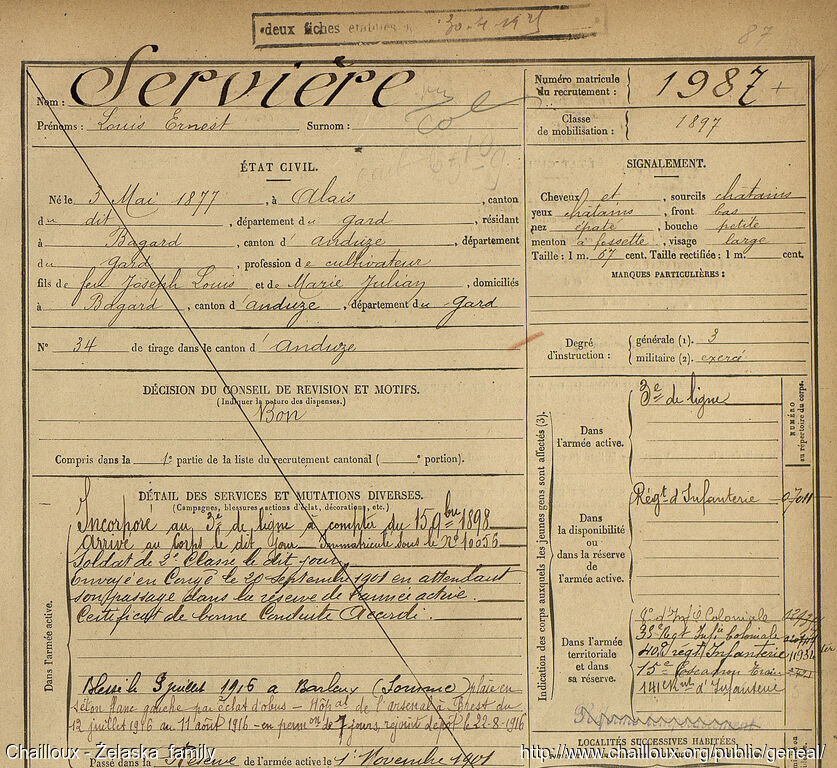 deux fiches établies le 30-4-1925
87
Nom : Servière
Prénoms : Louis Ernest Surnom :
Numéro matricule du recrutement : 1987
Classe de mobilisation : 1897
ÉTAT CIVIL.
Né le 3 Mai 1877, à Alais, canton
du dit, département du Gard, résidant
à Bagard, canton d'Anduze, département
du Gard, profession de cultivateur
fils de feu Joseph Louis et de Marie Julian, domiciliés
à Bagard, canton d'Anduze, département du Gard
N° 34 de tirage dans le canton d'Anduze
SIGNALEMENT.
Cheveux et, sourcils chatains
yeux chatains, front bas
nez épaté, bouche petite
menton à fossette, visage large
Taille : 1 m. 67 cent. Taille rectifiée : 1 m. cent.
MARQUES PARTICULIÈRES :
Degré d'instruction : générale (1). 3
militaire (2). exercé
DÉCISION DU CONSEIL DE REVISION ET MOTIFS.
(Indiquer la nature des dispenses.)
Bon
Compris dans la 1e partie de la liste du recrutement cantonal ( e portion).
DÉTAIL DES SERVICES ET MUTATIONS DIVERSES.
(Campagnes, blessures, actions d'éclat, décorations, etc.)
Dans l'armée active.
Incorporé au 3e de ligne à compter du 15 9bre 1898
Arrivé au Corps le dit jour immatriculé sous le N° 10056
Soldat de 2e Classe le dit jour
Envoyé en Congé le 20 septembre 1901 en attendant
son passage dans la réserve de l'armée active.
Certificat de bonne Conduite Accordé.
Blessé le 9 juillet 1916 à Barleux (Somme) plaie en
séton flanc gauche par éclat d'obus - Hôpal de l'arsenal à Brest du
12 juillet 1916 au 11 août 1916 - en permon de 7 jours, rejoint dépôt le 22-8-1916
Passé dans la Réserve de l'armée active le 1er Novembre 1901
Indication des corps auxquels les jeunes gens sont affectés (3).
NUMÉRO au répertoire du corps.
Dans l'armée active.
3e de ligne
Dans la disponibilité ou dans la réserve de l'armée active.
Régt d'Infanterie
Dans l'armée territoriale et dans sa réserve.
8e d'Infie Coloniale
35e Régt Infie Coloniale
40e régt Infanterie
15e Escadron Train
141e d'Infanterie
LOCALITÉS SUCCESSIVES HABITÉES
Chailloux - Żelaska_family
http://www.chailloux.org/public/geneal/